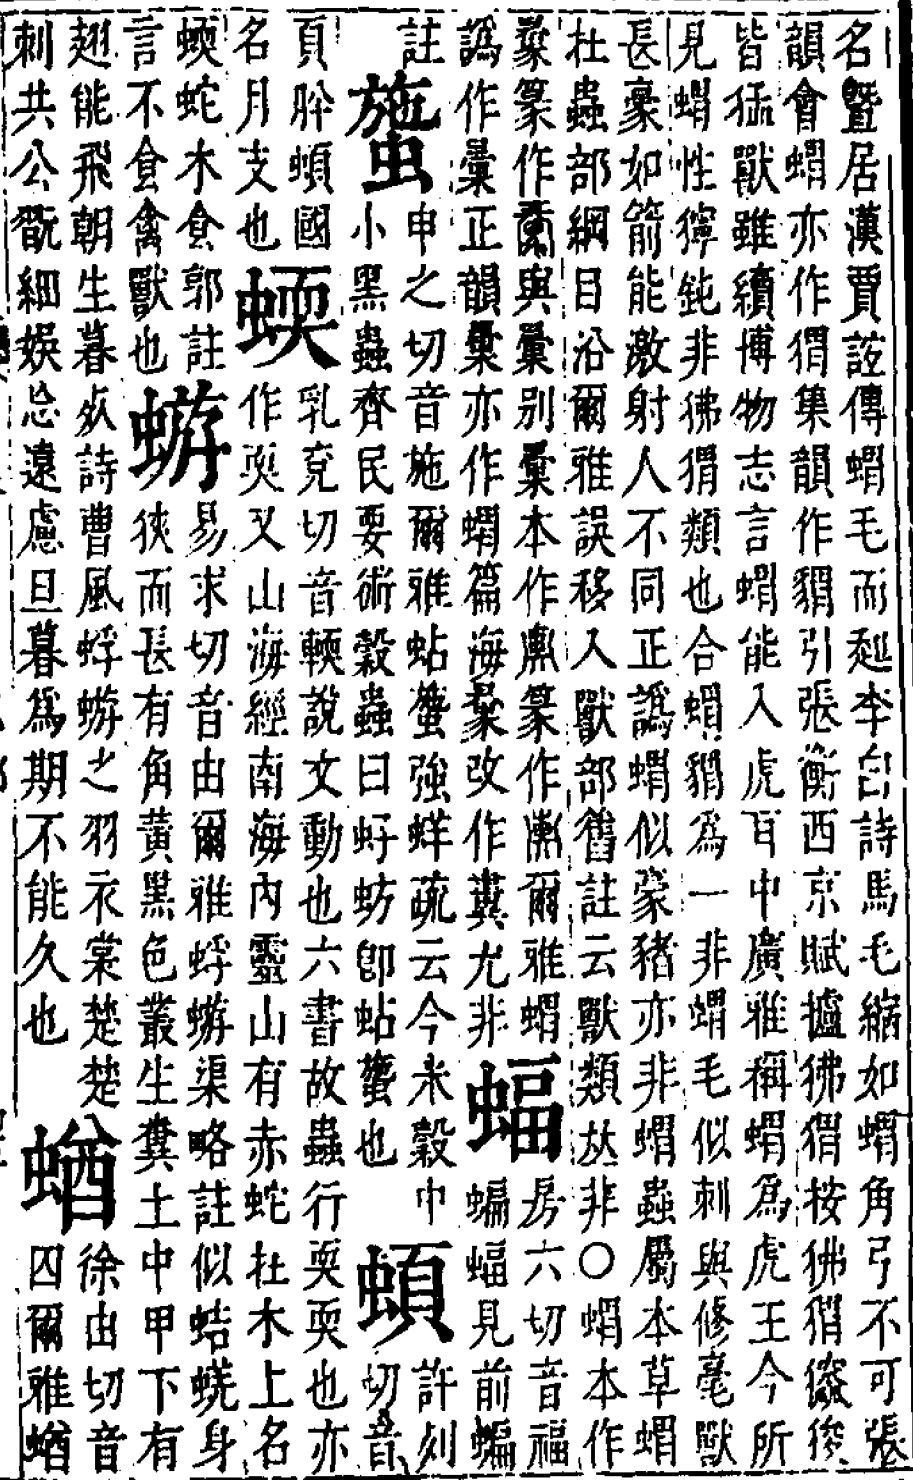 名曁居漢賈誼傳蝟毛而起李白詩馬毛縮如蝟角弓不可張
韻會蝟亦作猬集韻作䝐引張衡西京賦摣狒猬按狒猬狻
皆猛獸雖續博物志言蝟能入虎耳中廣雅稱蝟爲虎王今所
見蝟性獰鈍非狒猬類也合蝟䝐爲一非蝟毛似刺與修毫獸
長豪如箭能激射人不同正譌蝟似豪豬亦非蝟蟲屬本草蝟
杜蟲部綱目沿爾雅誤移入獸部舊註云獸類𠀤非○蝟本作
彚篆作與彙別彙本作篆作爾雅蝟
譌作彙正韻彙亦作蝟篇海彚改作尤非
蝠
房六切音福
蝙蝠見前蝙
註
䗐
申之切音施爾雅蛄䗐強蛘疏云今米穀中
小黑蟲齊民要術穀蟲曰蛘蚄卽蛄䗐也
蝢
許列
切音
頁肸蝢國
名月支也
蝡
乳兗切音輭說文動也六書故蟲行耎耎也亦
作耎又山海經南海內靈山有赤蛇在木上名
蝡蛇木食郭註
言不食禽獸也
蝣
易求切音由爾雅蜉蝣渠略註似蛣蜣身
狹而長有角黃黑色叢生糞土中甲下有
翅能飛朝生暮死詩曹風蜉蝣之羽衣裳楚楚
刺共公翫細娛忘遠慮旦暮爲期不能久也
蝤
徐由切音
囚爾雅蝤